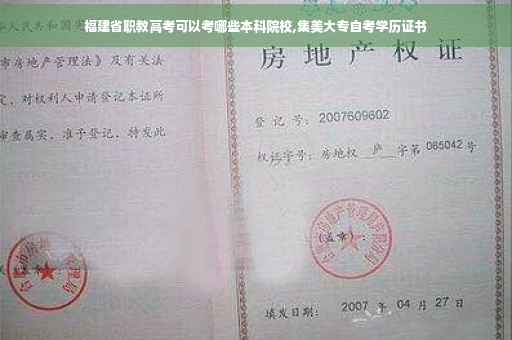 福建省职教高考可以考哪些本科院校,集美大专自考学历证书
人民共和国宪
市房地产管理法》及有关法
定，对权利人申请登记本证所
审查属实，准予登记，特发此
房地产权证
登记号：2007609602
权证字号：房地权 庐 字第 085042 号
(盖章)：
填发日期： 2007 年 04 月 27 日